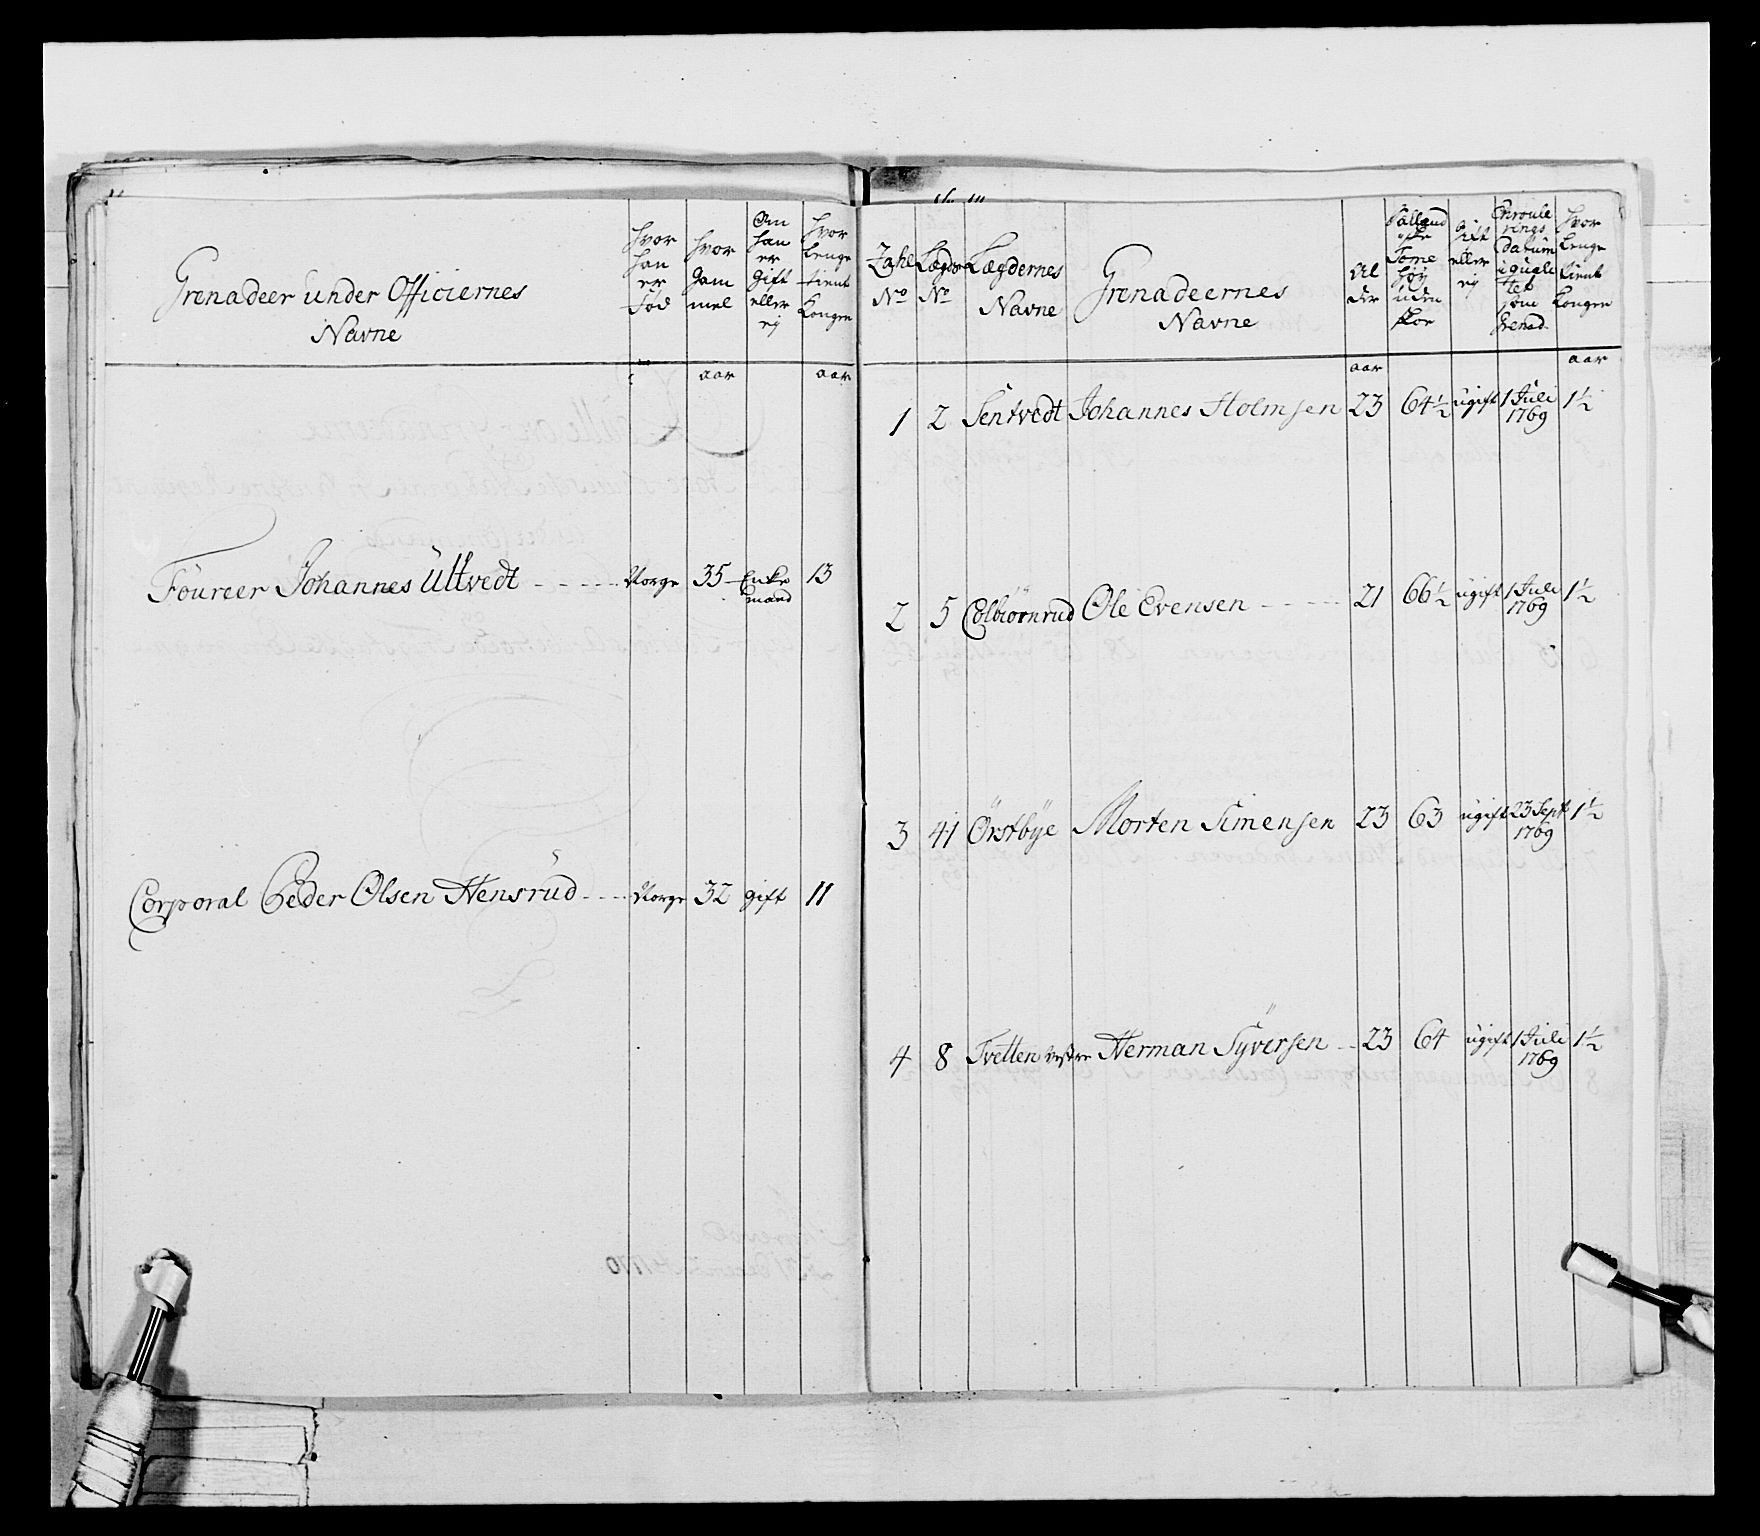 Grenadeer under Officiernes
Navne
hvor
han
er
Fød
hvor
gam
mel
Om
han
er
Gift
eller
ej
hvor
lenge
tient
Kongen
aar
aar
Foureer Johannes Ultvedt - - - - - Norge 35 Enke 13
mand
Corporal Peder Olsen Hensrud - - - - Norge 32 gift 11
Zahl
No
Lægds
No
Lægdernes
Navne
Grenadeernes
Navne
Al
der
Tome
høy
uden
skoe
Gift
eller
ej
Enroule
rings
Datum
som
Grenad.
hvor
lenge
tient
Kongen
aar
aar
1 2 Sentvedt Johannes Holmsen 23 64½ ugift 1 Juli 1½
1769
2 5 Colbiørnrud Ole Evensen - - - - - 21 66½ ugift 1 Juli 1½
1769
3 41 Örstbÿe Morten Simensen 23 63 ugift 23 Sept 1½
1769
4 8 Tvetten Vestre Herman Sÿversen - - 23 64 ugift 1 Juli 1½
1769